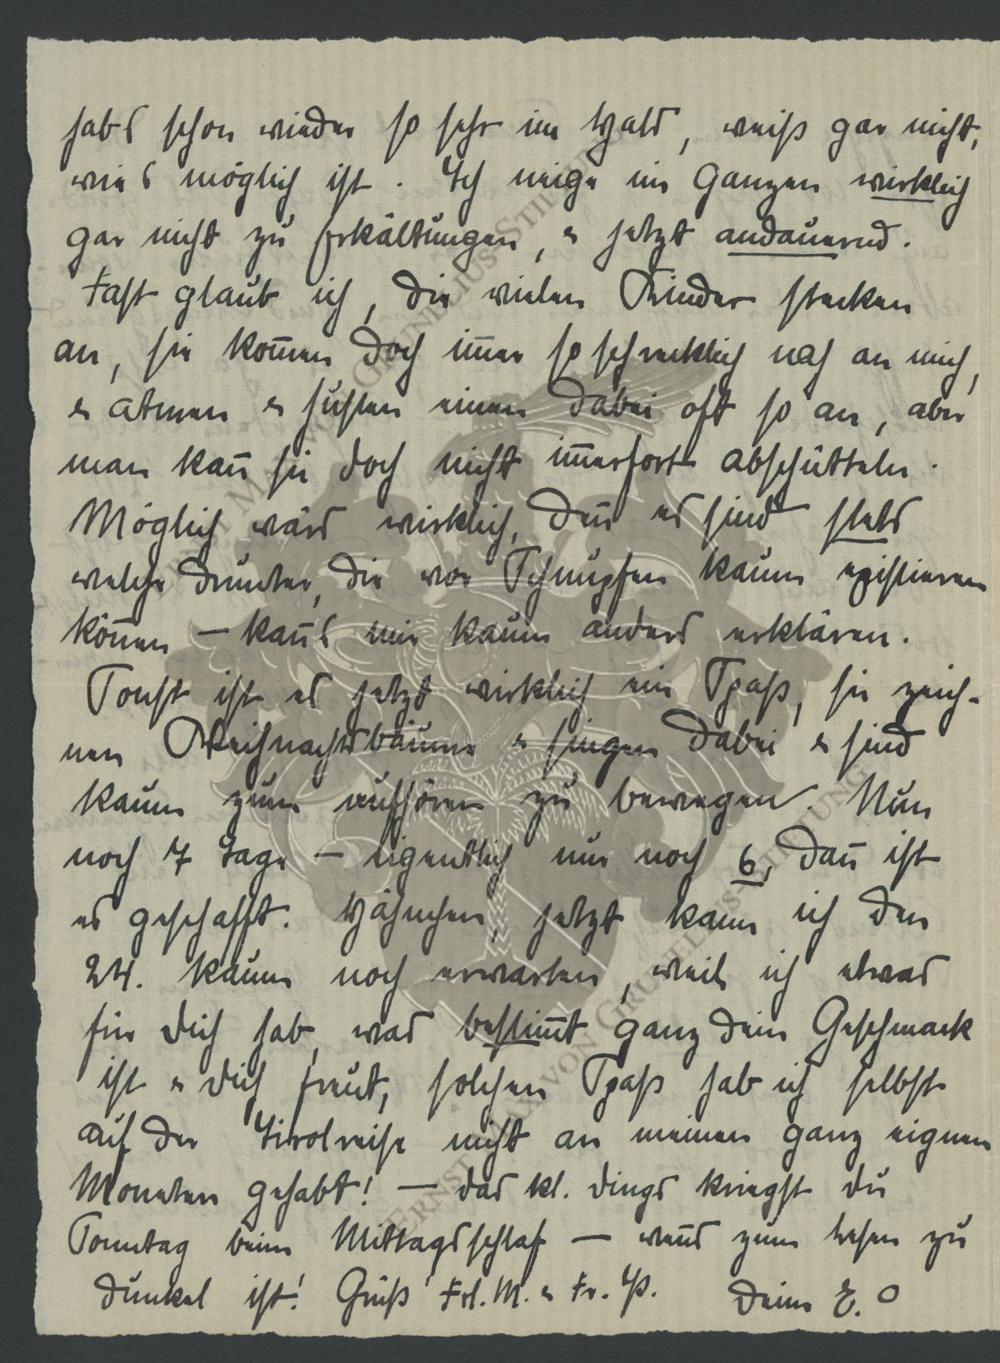 habs schon wieder so sehr im Hals, weiß gar nicht,
wies möglich ist. Ich neige im Ganzen wirklich
gar nicht zu Erkältungen, & jetzt andauernd.
Fast glaub ich, die vielen Kinder stecken
an, sie kom̅en doch im̅er so schrecklich nah an mich,
& atmen & husten einen dabei oft so an, aber
man kan̅ sie doch nicht im̅erfort abschütteln.
Möglich wärs wirklich, den̅ es sind stets
welche drunter, die vor Schnupfen kaum existieren
kön̅en – kan̅s mir kaum anders erklären.
Sonst ist es jetzt wirklich ein Spaß, sie zeich-
nen Weihnachtsbäume & singen dabei & sind
kaum zum aufhören zu bewegen. Nun
noch 7 Tage – eigentlich nur noch 6, dan̅ ist
es geschafft. Hähnchen, jetzt kann ich den
24. kaum noch erwarten, weil ich etwas
für Dich hab, was bestim̅t ganz dein Geschmack
ist & dich freut, solchen Spaß hab ich selbst
auf der Tirolreise nicht an meinen ganz eignen
Moneten gehabt! – das kl. Dings kriegst du
Sonntag beim Mittagsschlaf – wen̅s zum lesen zu
dunkel ist! Grüß Frl. M. & Fr. P. Deine E. O
ERNST MAX VON GRUNELIUS-STIFTUNG
ERNST MAX VON GRUNELIUS-STIFTUNG